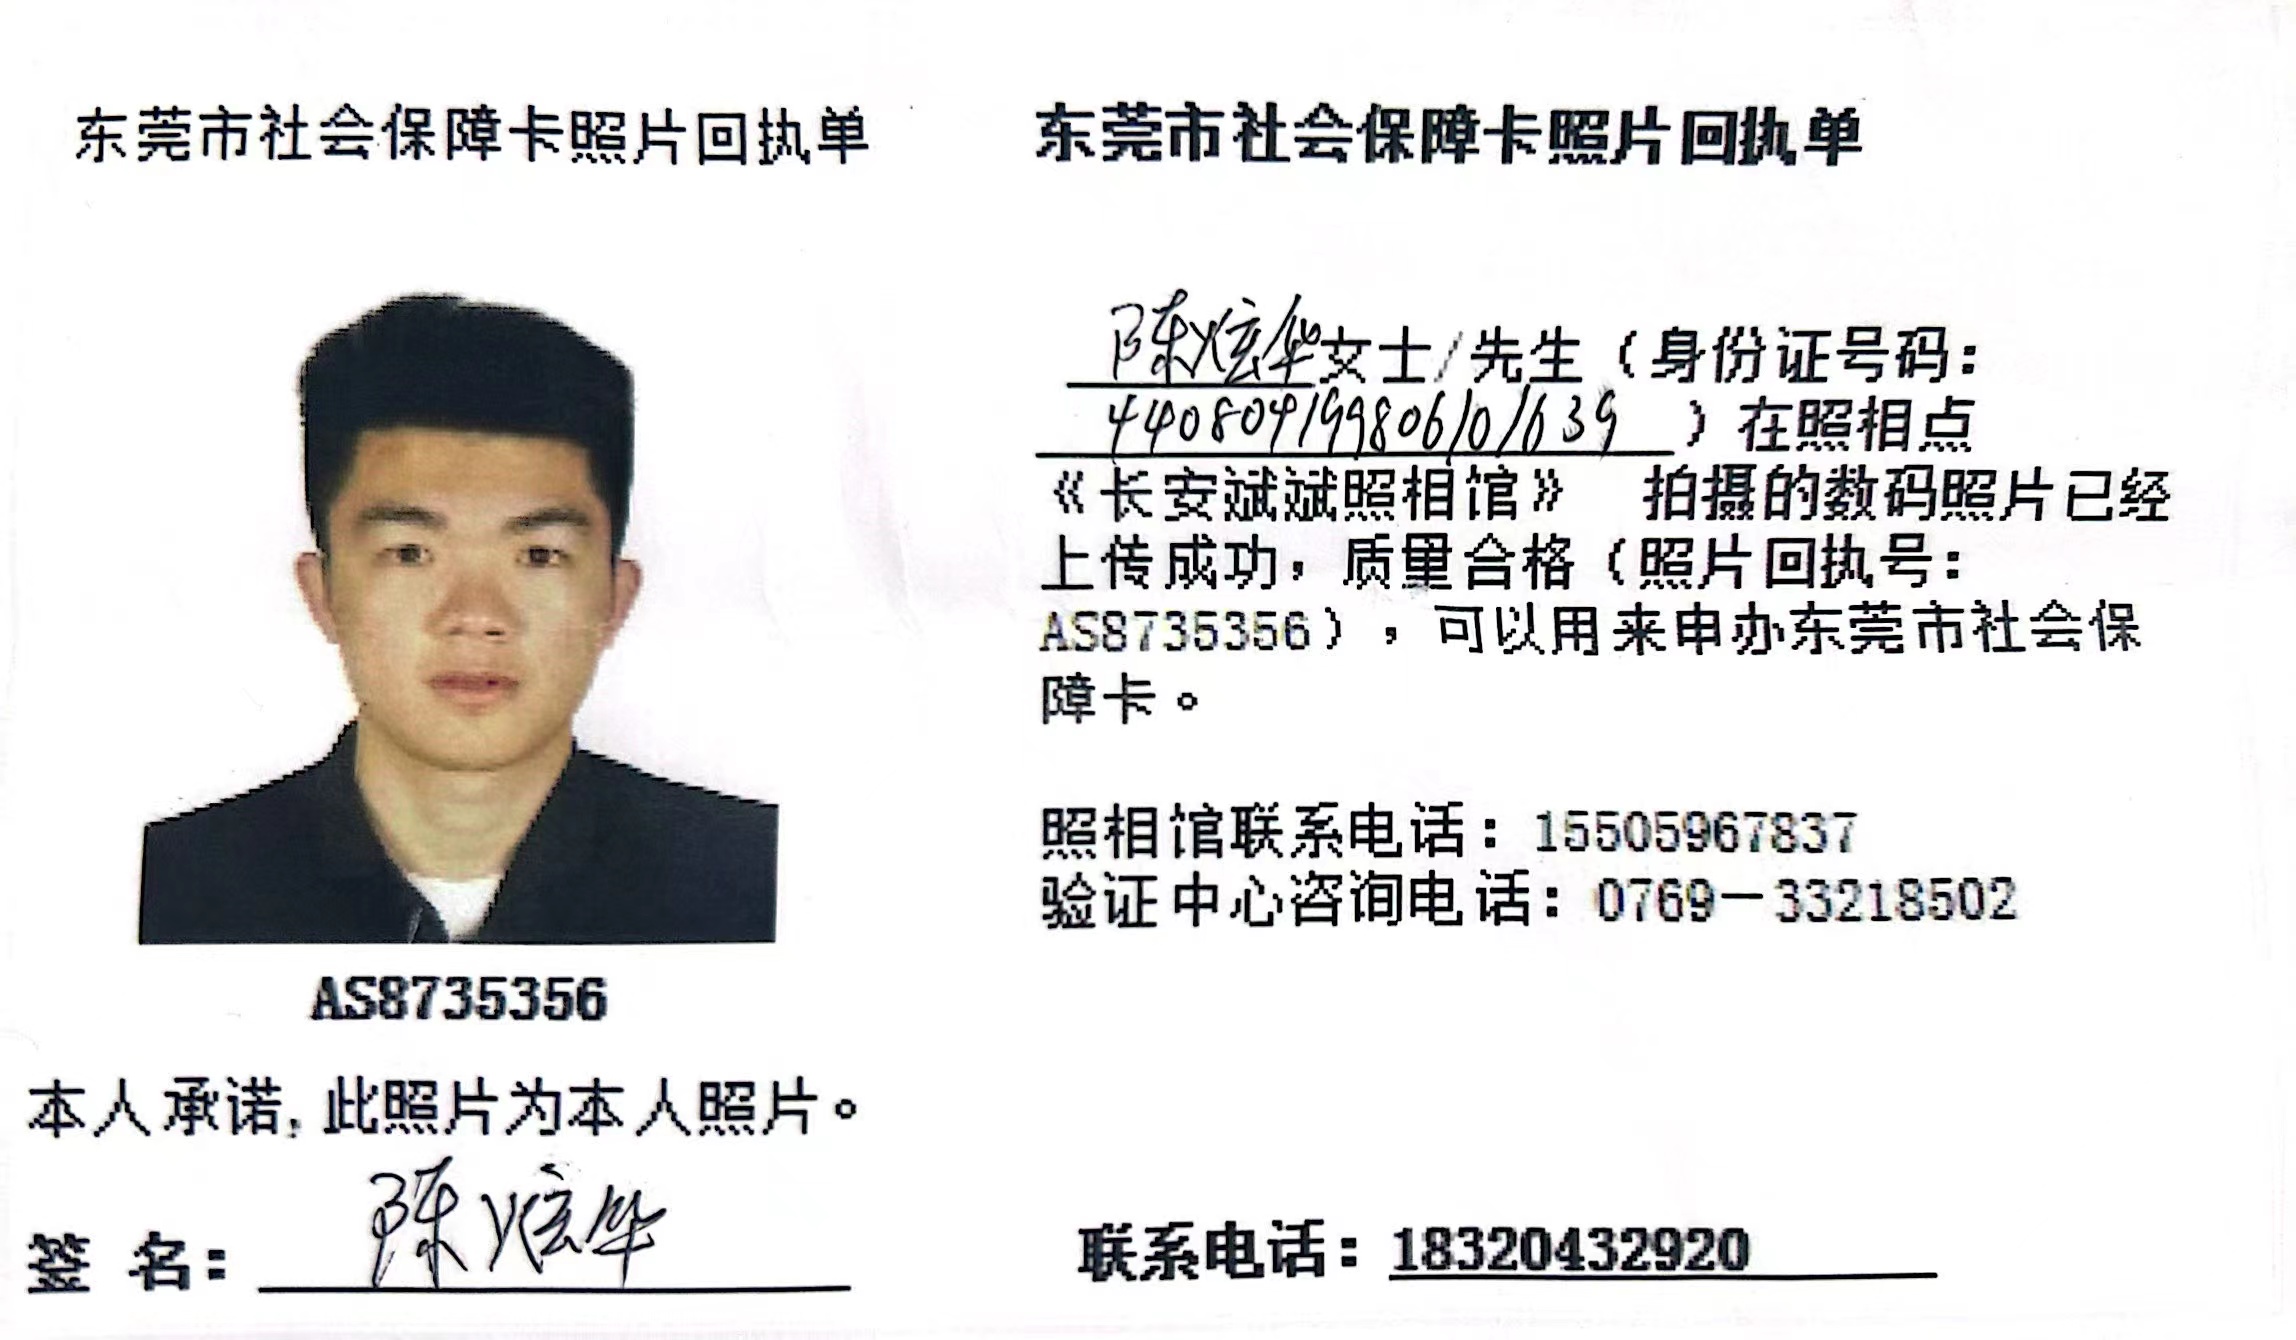 东莞市社会保障卡照片回执单
AS8735356
本人承诺,此照片为本人照片。
签 名: 陈炫华
东莞市社会保障卡照片回执单
陈炫华女士/先生(身份证号码:
440804199806101639)在照相点
《长安斌斌照相馆》 拍摄的数码照片已经
上传成功,质量合格(照片回执号:
AS8735356),可以用来申办东莞市社会保
障卡。
照相馆联系电话:15505967837
验证中心咨询电话:0769-33218502
联系电话:18320432920